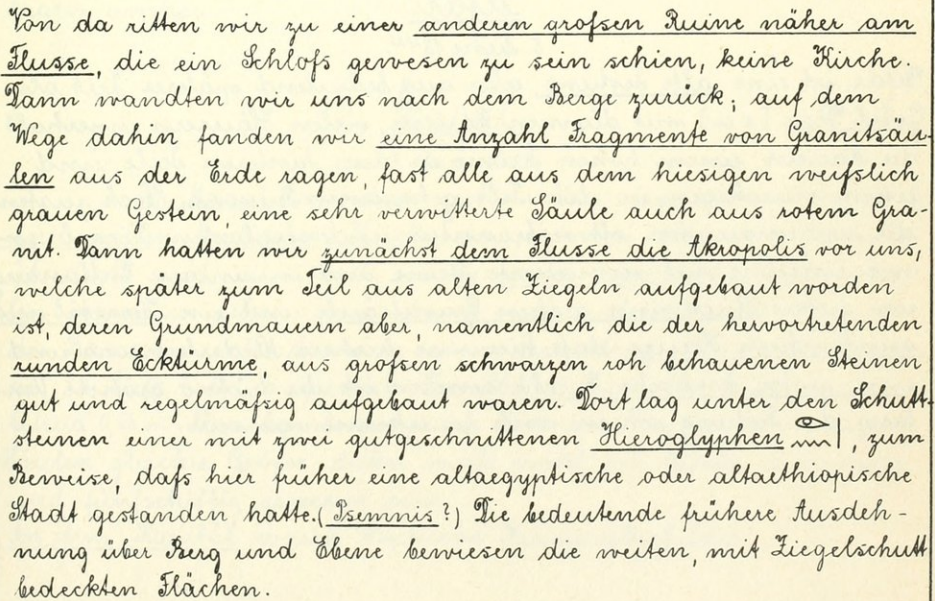 Von da ritten wir zu einer anderen großen Ruine näher am
Flusse, die ein Schloß gewesen zu sein schien, keine Kirche.
Dann wandten wir uns nach dem Berge zurück; auf dem
Wege dahin fanden wir eine Anzahl Fragmente von Granitsäu-
len aus der Erde ragen, fast alle aus dem hiesigen weißslich
grauen Gestein, eine sehr verwitterte Säule auch aus rotem Gra-
nit. Dann hatten wir zunächst dem Flusse die Akropolis vor uns,
welche später zum Teil aus alten Ziegeln aufgebaut worden
ist, deren Grundmauern aber, namentlich die der hervortretenden
runden Ecktürme, aus großen schwarzen roh behauenen Steinen
gut und regelmäßig aufgebaut waren. Dort lag unter den Schutt-
steinen einer mit zwei gutgeschnittenen Hieroglyphen 𓁹𓈖𓏤, zum
Beweise, daß hier früher eine altaegyptische oder altaethiopische
Stadt gestanden hatte. (Psemnis?) Die bedeutende frühere Ausdeh-
nung über Berg und Ebene bewiesen die weiten, mit Ziegelschutt
bedeckten Flächen.